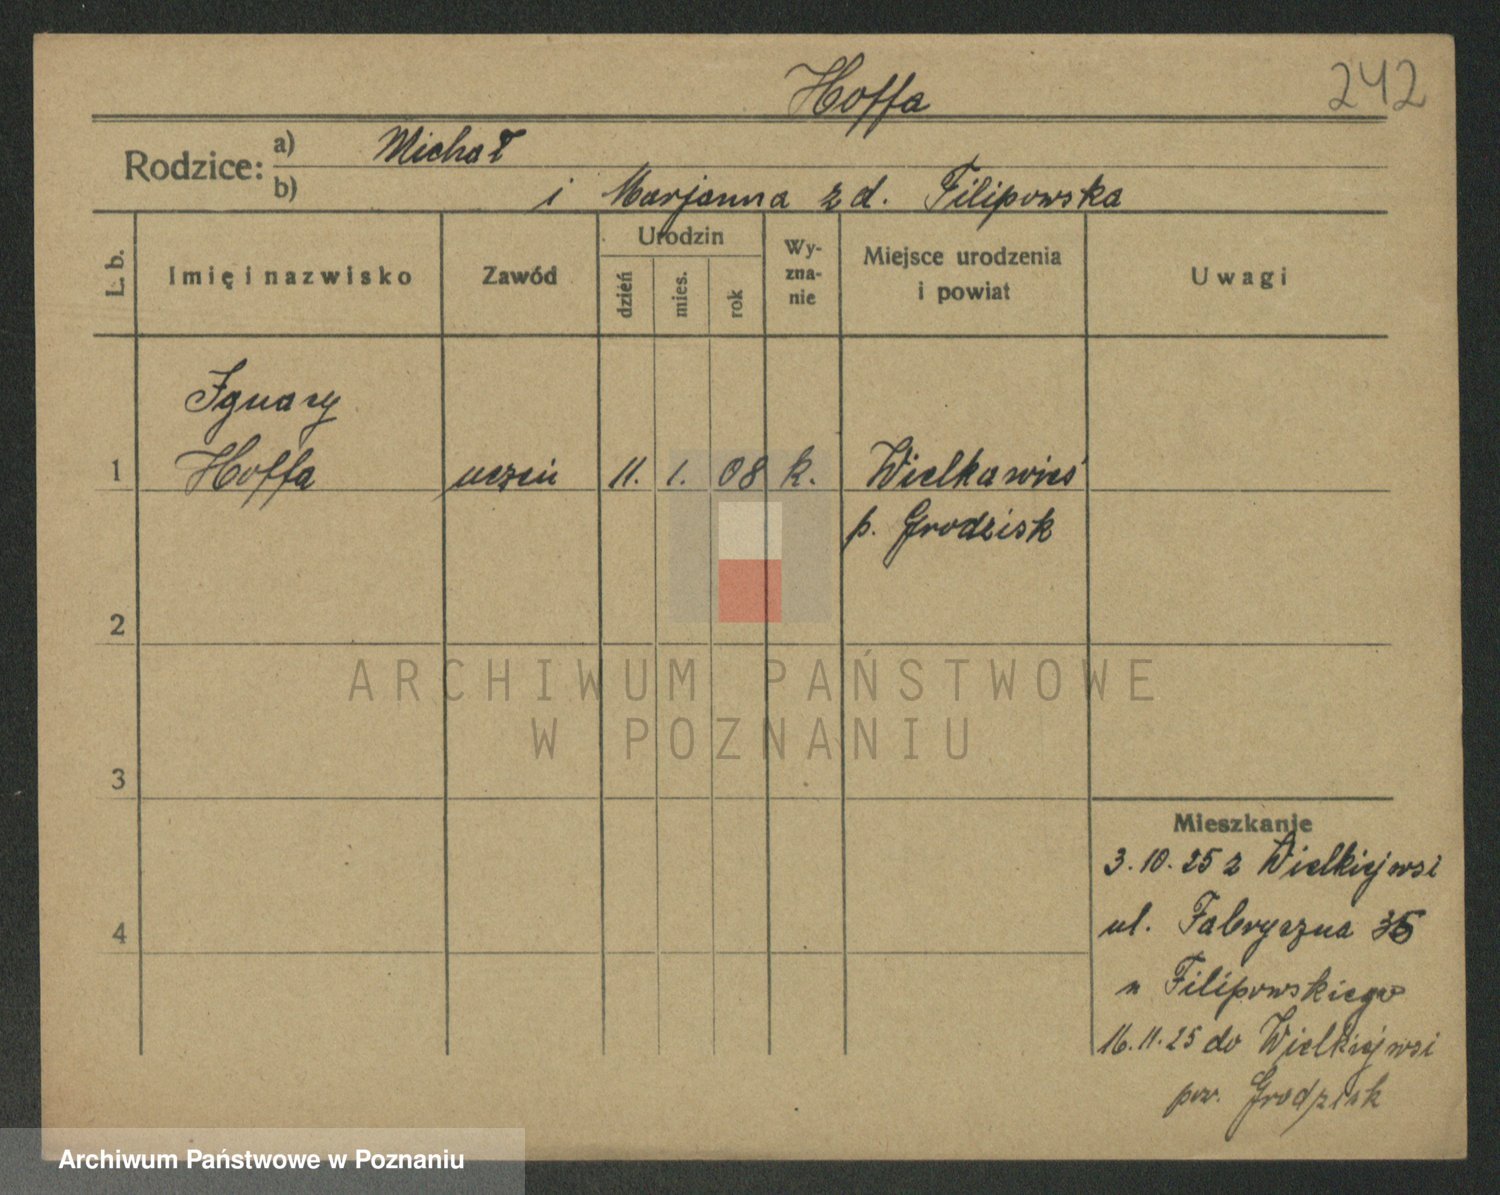 Hoffa
242
Rodzice:
a) Michał
b) i Marjanna z d. Filipowska
L. b.
Imię i nazwisko
Zawód
Urodzin
dzień
mies.
rok
Wy-
zna-
nie
Miejsce urodzenia
i powiat
Uwagi
Ignacy
1 Hoffa uczeń 11. 1. 08 k. Wielkawieś
p. Grodzisk
2
ARCHIWUM PAŃSTWOWE
W POZNANIU
3
Mieszkanie
3.10.25 z Wielkiejwsi
4 ul. Fabryczna 36
u Filipowskiego
16.11.25 do Wielkiejwsi
pow. Grodzisk
Archiwum Państwowe w Poznaniu